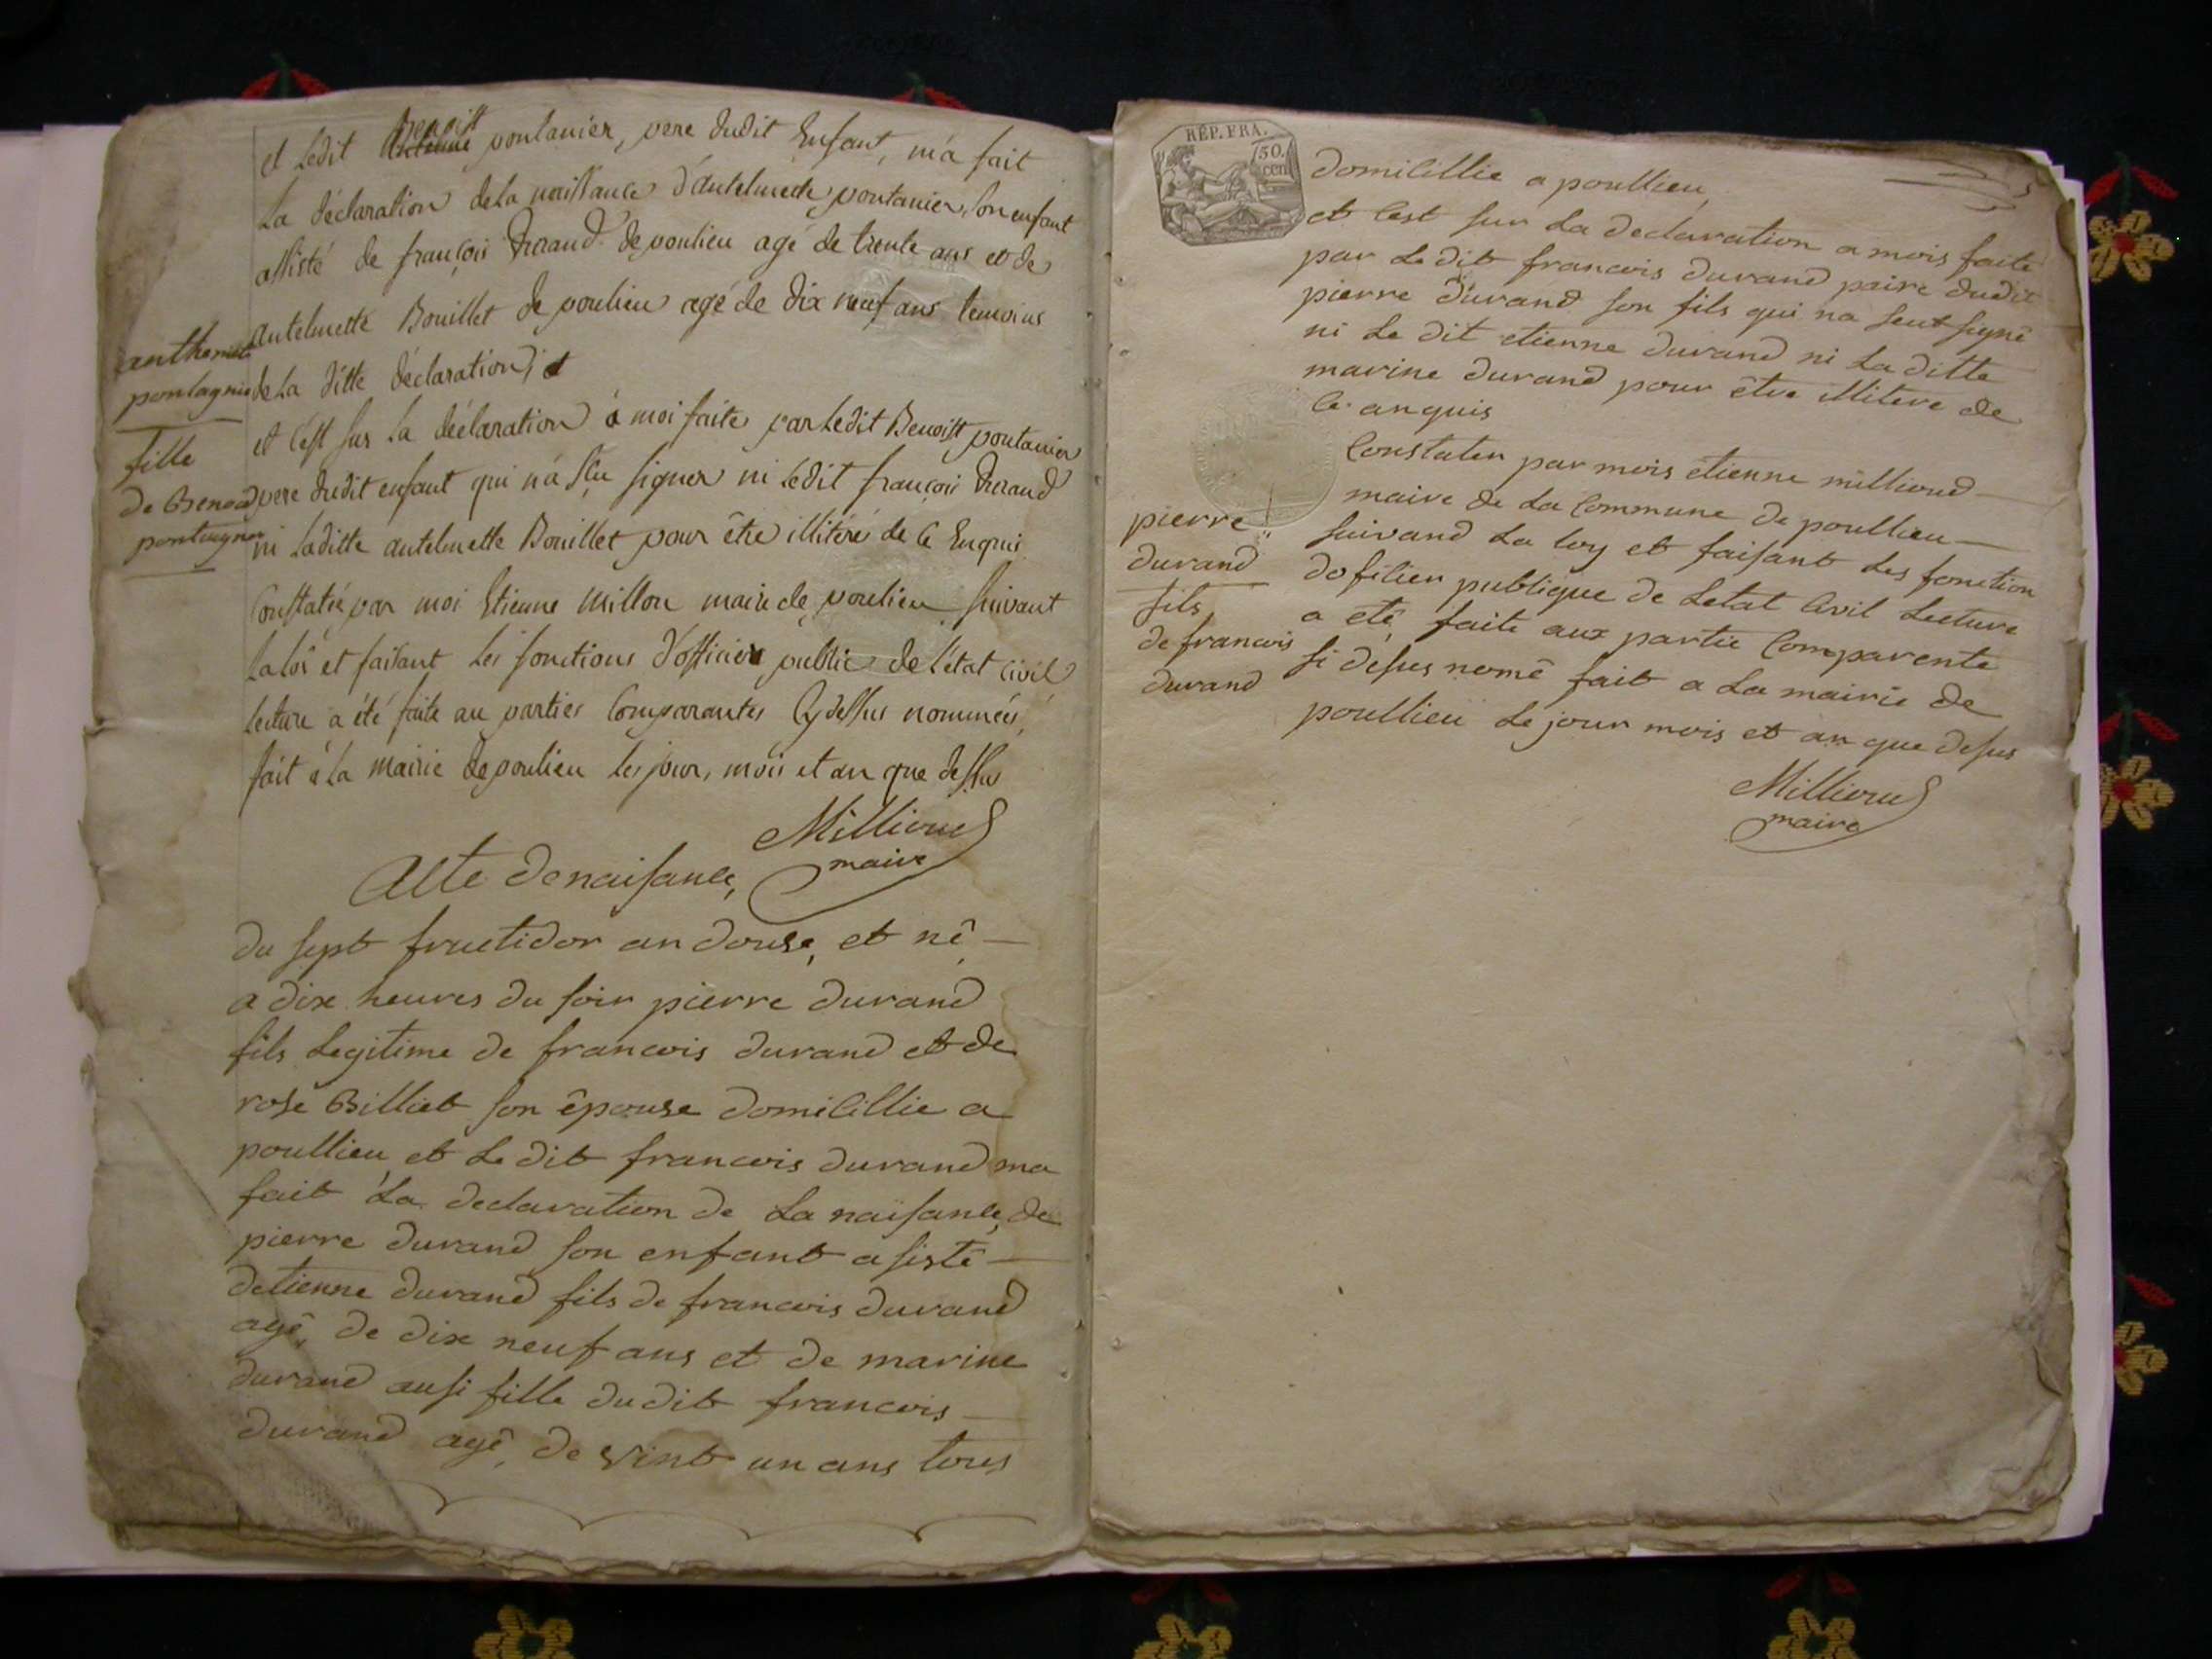 et ledit Benoist pontanier, pere dudit Enfant, m'a fait
la déclaration de la naissance d'antelmette pontanier, son enfant
assisté de françois Durand de poulieu agé de trente ans et de
antelmette Bouillet de poulieu agé de dix neuf ans temoins
de la ditte déclaration, et
et c'est sur la déclaration à moi faite par ledit Benoist pontanier
pere dudit enfant qui n'a sçu signer ni ledit françois Durand
ni laditte antelmette Bouillet pour être illitéré de ce Enquis
Constatée par moi Etienne Millon maire de poulieu suivant
la loi et faisant les fonctions d'officier public de l'état civil
lecture a été faite au parties Comparantes Cy dessus nommées,
fait à la mairie de poulieu les jour, mois et an que dessus
Millioud
maire
fille
de Benoid
Acte de naisance,
du sept fructidor an douse, et né
a dix heures du soir pierre durand
fils legitime de francois durand et de
rose Billiet son épouse domicillie a
poullieu et le dit francois durand ma
fait la declaration de la naisance de
pierre durand son enfant asisté
detienne durand fils de francois durand
agé de dix neuf ans et de marine
durand ausi fille dudit francois
durand agé de vint un ans tous
RÉP. FRA.
50.
cen
domicillie a poullieu
et cest sur la declaration a mois faite
par le dit francois durand paire dudit
pierre durand son fils qui na seut signé
ni le dit etienne durand ni la ditte
marine durand pour étre illitere de
ce anquis
Constater par mois etienne millioud
maire de la Commune de poullieu
suivand la loy et faisant les fonction
dofisier publique de letat Civil lecture
a eté faite aux partie Comparente
si desus nomé fait a la mairie de
poullieu le jour mois et an que desus
Millioud
maire
pierre
durand
fils
de francois
durand